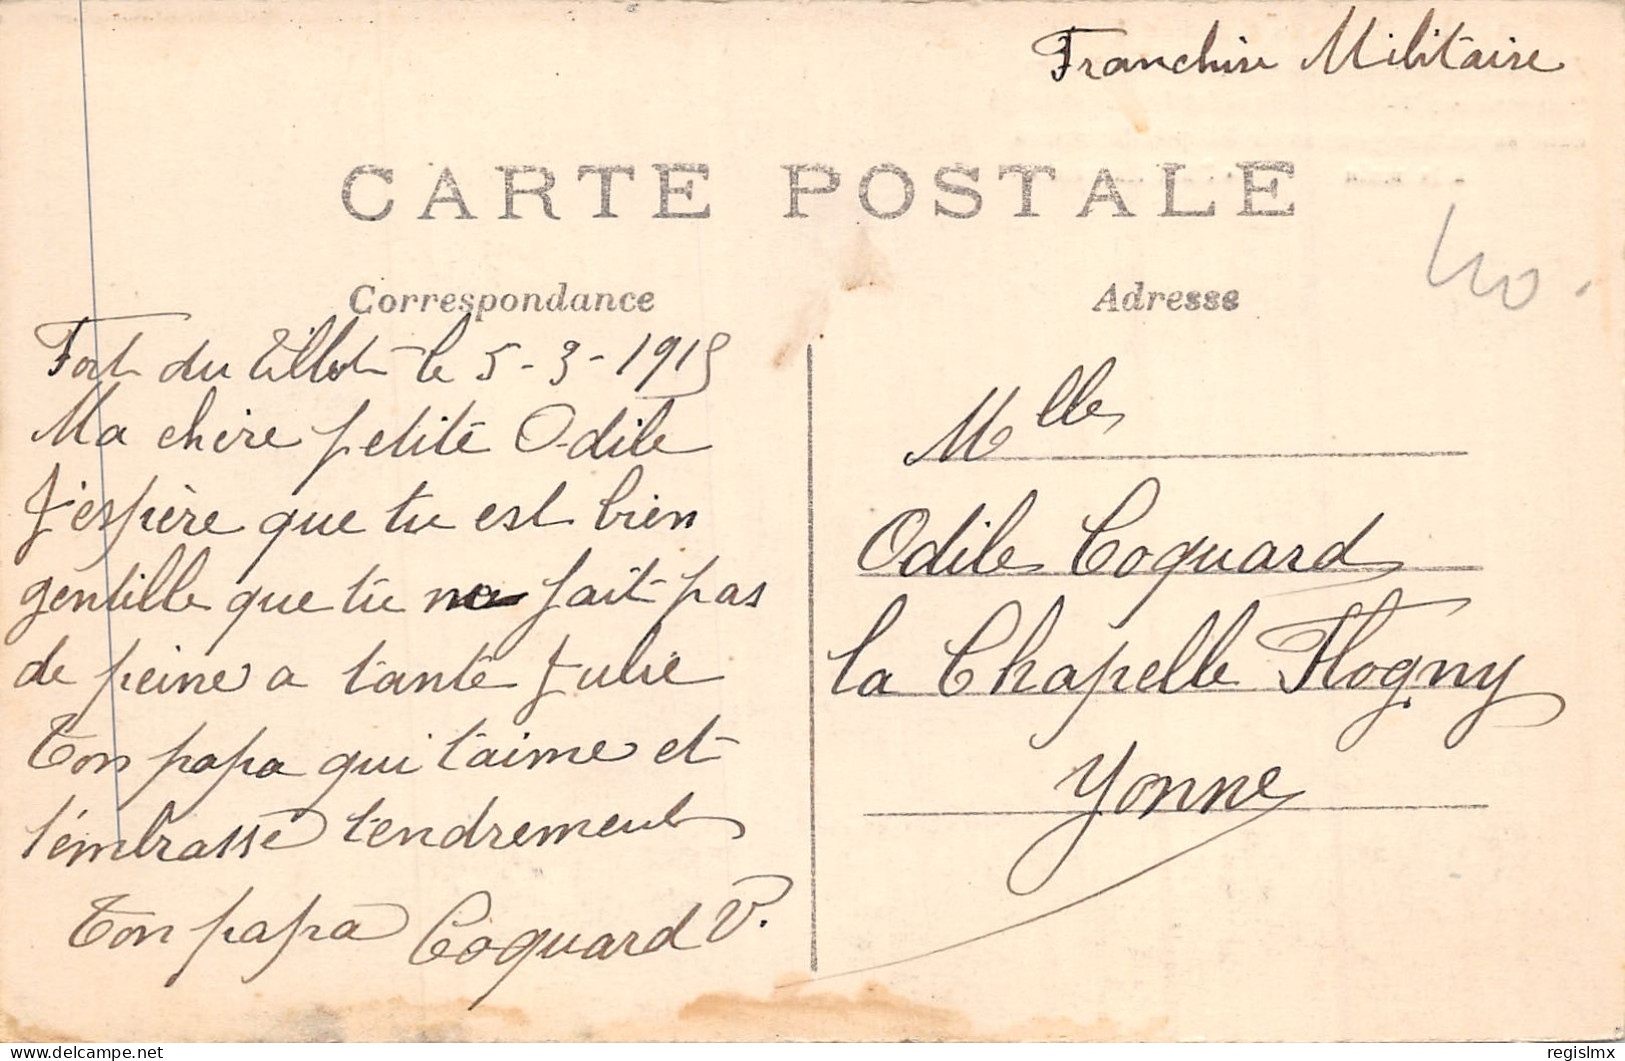 Franchise Militaire
CARTE POSTALE
Correspondance
Adresse
Fort du Tillot le 5-3-1915
Ma chère petite Odile
J'espère que tu est bien
gentille que tu ne fait pas
de peine a tante Julie
Ton papa qui t'aime et
t'embrasse tendrement
Ton papa Coquard V.
Mlle
Odile Coquard
la Chapelle Flogny
Yonne
40.
delcampe.net
regislmx